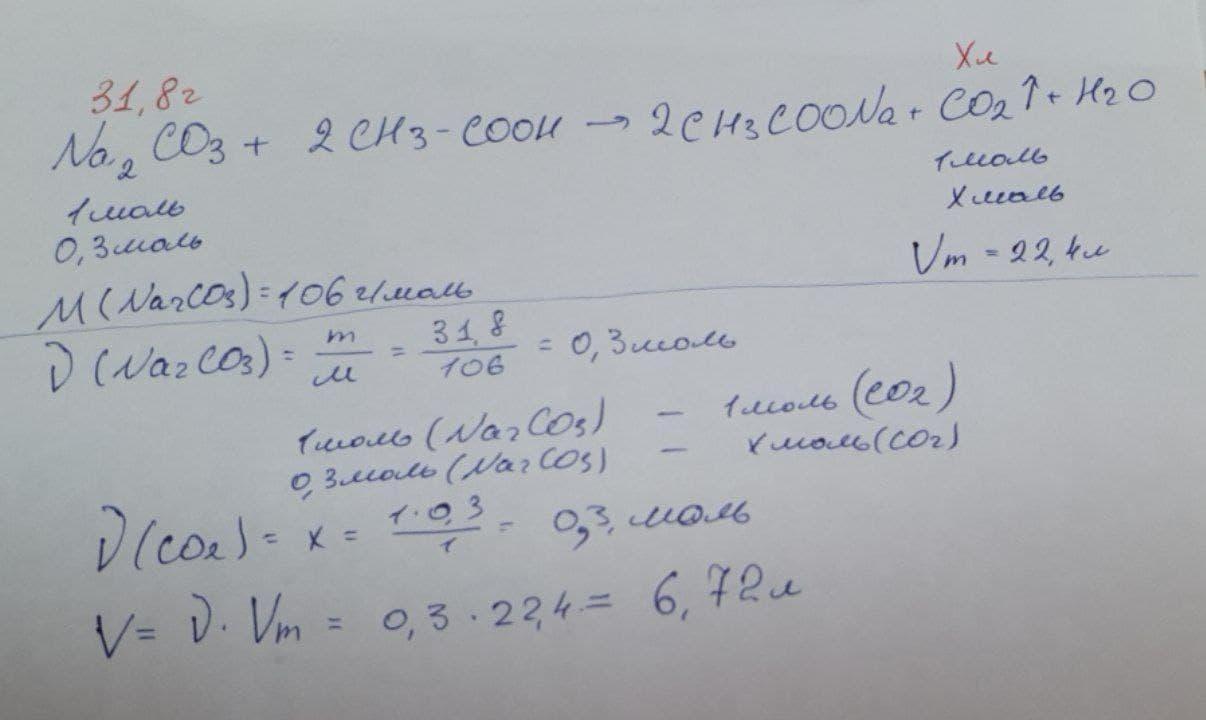 31,8г Xл
Na2CO3 + 2CH3-COOH → 2CH3COONa + CO2↑ + H2O
1моль 1моль
0,3моль Xмоль
Vm = 22,4л
M(Na2CO3)=106г/моль
ν(Na2CO3) = m/M = 31,8/106 = 0,3моль
1моль(Na2CO3) – 1моль(CO2)
0,3моль(Na2CO3) – xмоль(CO2)
ν(CO2) = x = 1·0,3/1 = 0,3 моль
V = ν · Vm = 0,3 · 22,4 = 6,72л